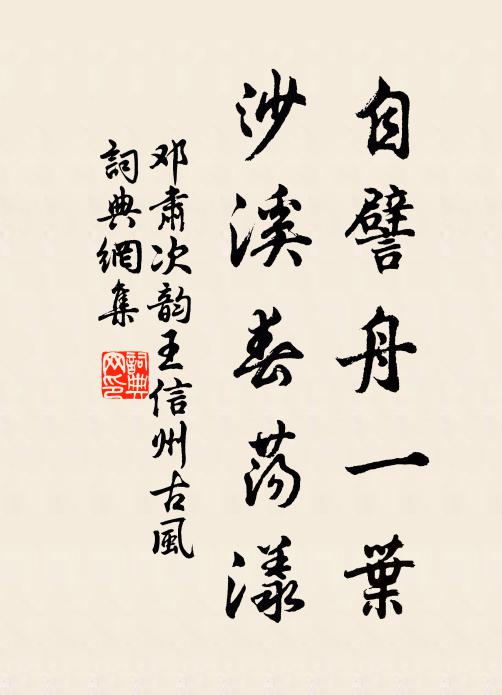 自譬舟一葉
沙溪春蕩漾
邓肅次韵王信州古風
詞典網集
詞典
网印